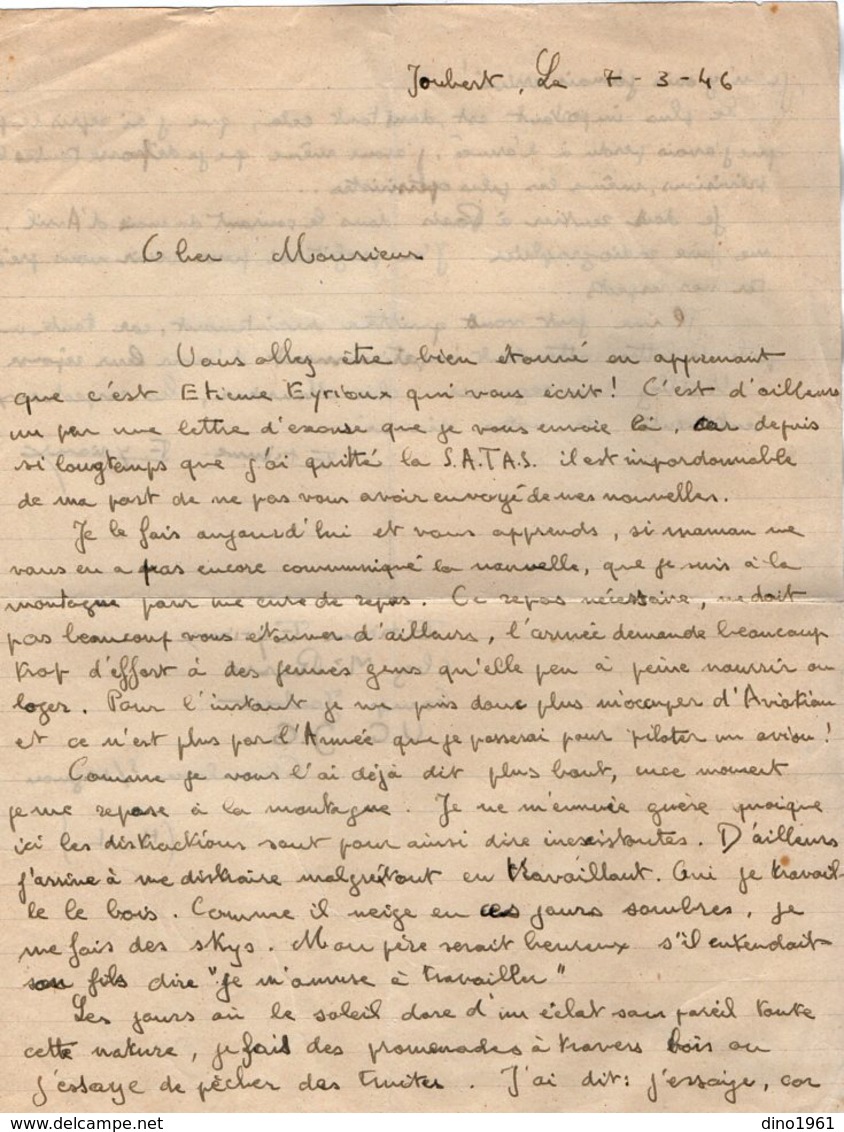 Joubert, Le 7-3-46
Cher Monsieur
Vous allez être bien étonné en apprenant
que c'est Etienne Eyrioux qui vous écrit! C'est d'ailleurs
un peu une lettre d'excuse que je vous envoie là, car depuis
si longtemps que j'ai quitté la S.A.T.A.S. il est impardonnable
de ma part de ne pas vous avoir envoyé de mes nouvelles.
Je le fais aujourd'hui et vous apprends, si maman ne
vous en a pas encore communiqué la nouvelle, que je suis à la
montagne pour une cure de repos. Ce repos nécessaire, ne doit
pas beaucoup vous étonner d'ailleurs, l'armée demande beaucoup
trop d'effort à des jeunes gens qu'elle peu à peine nourrir ou
loger. Pour l'instant je ne puis donc plus m'occuper d'Aviation
et ce n'est plus par l'Armée que je passerai pour piloter un avion!
Comme je vous l'ai déjà dit plus haut, en ce moment
je me repose à la montagne. Je ne m'ennuie guère quoique
ici les distractions sont pour ainsi dire inexistantes. D'ailleurs
j'arrive à me distraire malgré tout en travaillant. Oui je travail-
le le bois. Comme il neige en ces jours sombres, je
me fais des skys. Mon père serait heureux s'il entendait
son fils dire "je m'amuse à travailler"
Les jours où le soleil dore d'un éclat sans pareil toute
cette nature, je fais des promenades à travers bois ou
j'essaye de pêcher des truites. J'ai dit: j'essaye, car
dino1961